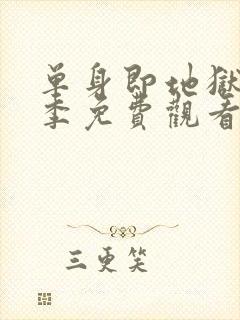 單身即地獄
季免費觀看
三更笑